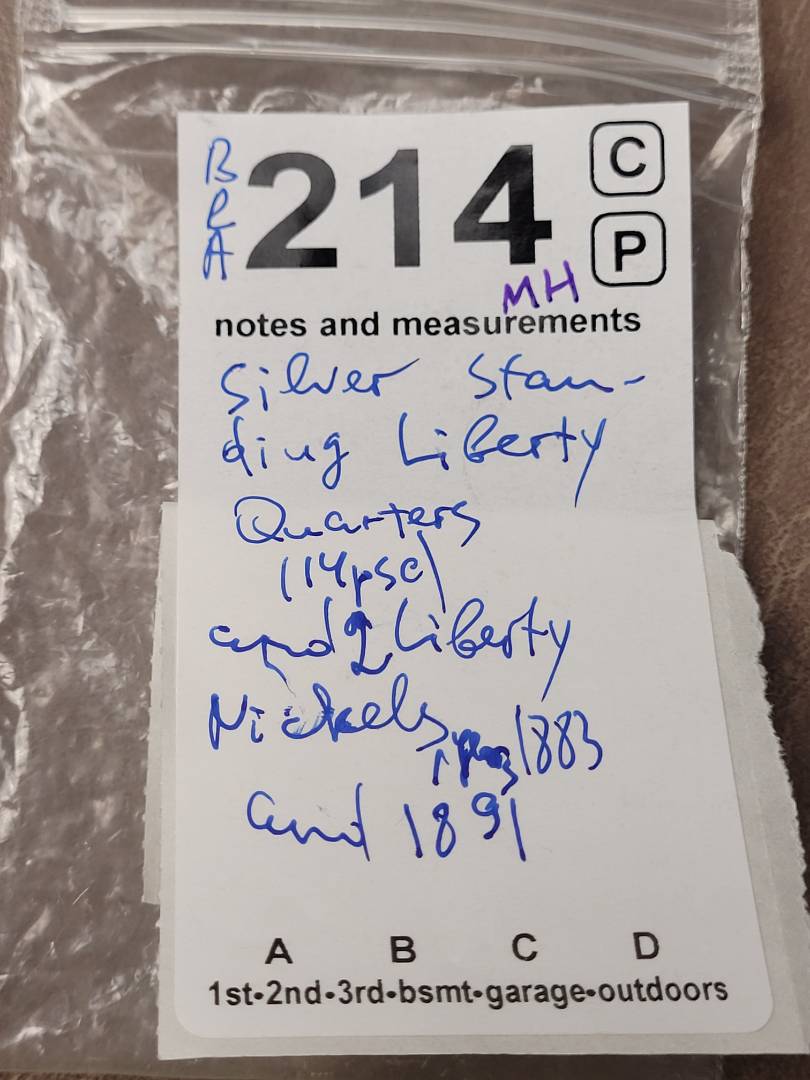 BRA 214 C
P
MH
notes and measurements
Silver Stan-
ding Liberty
Quarters
(14psc)
and 2 Liberty
Nickels, 1883
and 1891
A B C D
1st•2nd•3rd•bsmt•garage•outdoors